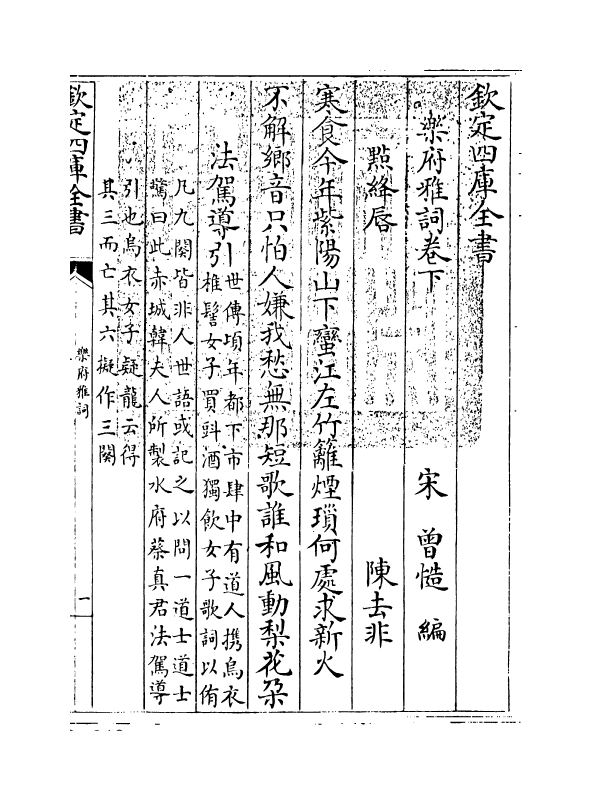 欽定四庫全書
樂府雅詞卷下
宋 曾慥 編
點絳唇
陳去非
寒食今年紫陽山下蠻江左竹籬煙瑣何處求新火
不解鄉音只怕人嫌我愁無那短歌誰和風動梨花朶
法駕導引
世傳頃年都下市肆中有道人携烏衣
椎髻女子買㪷酒獨飲女子歌詞以侑
凡九闋皆非人世語或記之以問一道士道士
驚曰此赤城韓夫人所製水府蔡真君法駕導
引也烏衣女子疑龍云得
其三而亡其六擬作三闋
欽定四庫全書
樂府雅詞
一